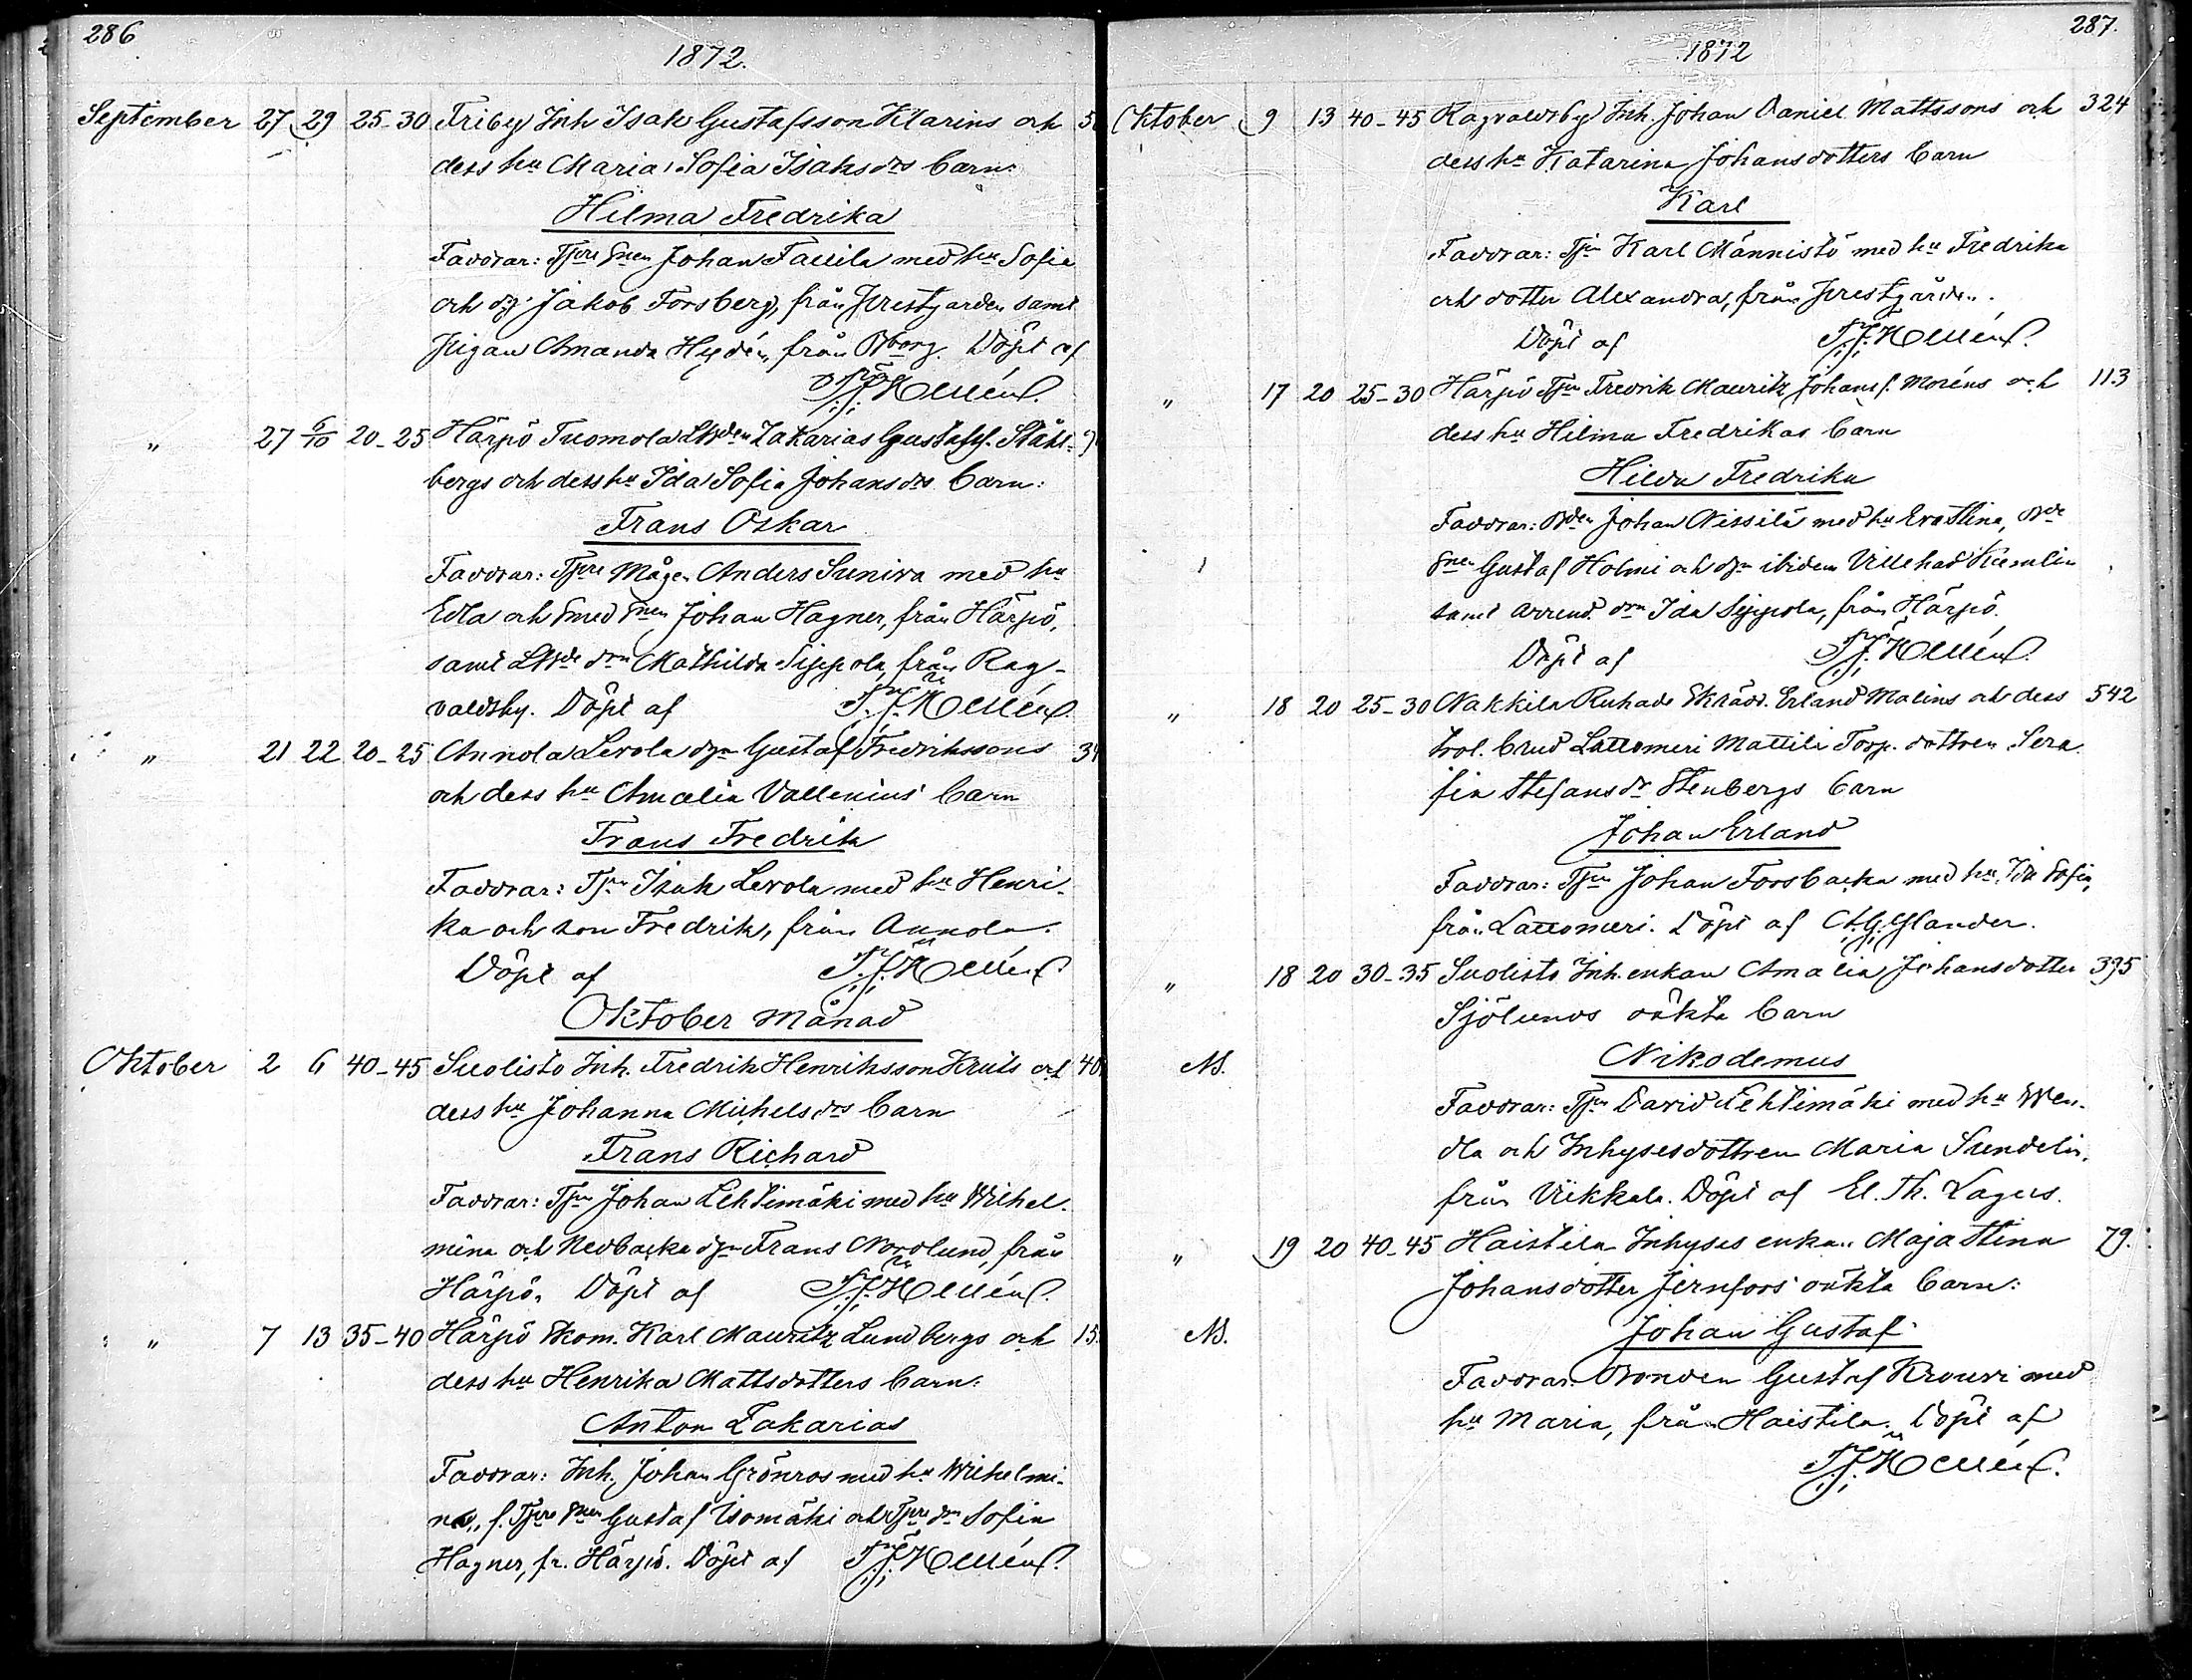 286
1872.
September 27 29 25-30 Friby Inh Isak Gustafsson Klarins och 5
dess hu Maria Sofia Isaksdrs barn:
Hilma Fredrika
Faddrar: Johan Tallila med hu Sofia
och Jakob Forsberg, från Prestgården samt
Pigan Amanda Hydén, från Bborg. Döpt af
Hellén
„ 27 6/10 20-25 Härpö Tuomola Zakarias Gustafss. Ståhl-
bergs och dess hu Ida Sofia Johansdrs barn:
Frans Oskar
Faddrar: Tpre Mågen Anders Suniva med hu
Edla och Johan Hagner, från Härpö,
samt drn Mathilda Sippola, från Rag-
valdsby. Döpt af Hellén
„ 21 22 20-25 Annola Levola Gustaf Fredrikssons 34
och dess hu Amalia Vallenius' barn
Frans Fredrik
Faddrar: Tpn Isak Levola med hu Henri-
ka och son Fredrik, från Annola.
Döpt af Hellén
Oktober Månad
Oktober 2 6 40-45 Suolisto Inh. Fredrik Henriksson Kruls och 40
dess hu Johanna Michelsdrs barn
Frans Richard
Faddrar: Tpn Johan Lehtimäki med hu Wilhel-
mina och Nedbacka Frans Nordlund, från
Härpö. Döpt af Hellén
„ 7 13 35-40 Härpö Skom. Karl Mauritz Lundbergs och 15
dess hu Henrika Mattsdotters barn:
Anton Zakarias
Faddrar: Inh. Johan Grönros med hu Wilhelmi-
na, f. Tpre Gustaf Isomäki och Tpre drn Sofia
Hagner, fr. Härpö. Döpt af Hellén
287.
1872
Oktober 9 13 40-45 Ragvaldsby Inh. Johan Daniel Mattssons och 324
dess hu Katarina Johansdotters barn
Karl
Faddrar: Tpn Karl Männistö med hu Fredrika
och dotter Alexandra, från Prestgården.
Döpt af Hellén
„ 17 20 25-30 Härpö Tpn Fredrik Mauritz Johanss. Moréns och 113
dess hu Hilma Fredrikas barn
Hilda Fredrika
Faddrar: Bden Johan Nissilä med hu Eva Stina, Bde
Gustaf Holmi och ibidem Villehad Kiemlin
samt Arrend. drn Ida Sippola, från Härpö.
Döpt af Hellén
„ 18 20 25-30 Nakkila Ruhade Skrädd. Erland Malins och dess 542
trol. brud Lattomeri Mattila Torp. dottren Sera
fia Stefansdr Stenbergs barn
Johan Erland
Faddrar: Tpn Johan Forsbacka med hu Ida Sofia,
från Lattomeri. Döpt af
„ 18 20 30-35 Suolisto Inh. enkan Amalia Johansdotter 395
Sjölunds oäkta barn
NB. Nikodemus
Faddrar: Tpn David Lehtimäki med hu Wen-
dla och Inhysesdottren Maria Sundelin,
från Viikkala. Döpt af El. Th. Lagus.
„ 19 20 40-45 Haistila Inhyses enkan Maja Stina 79.
Johansdotter Jernfors' oäkta barn:
NB. Johan Gustaf
Faddrar: Bonden Gustaf Krouvi med
hu Maria, från Haistila. Döpt af
Hellén